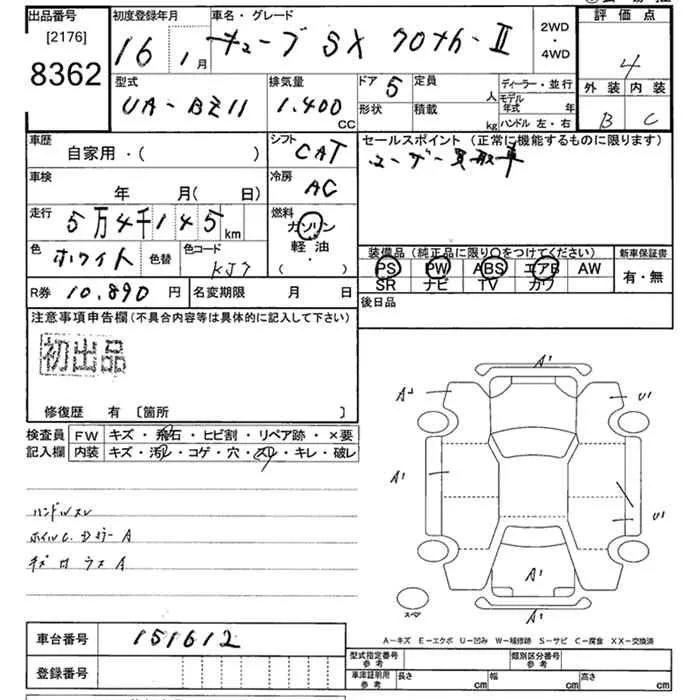 出品番号 初度登録年月 車名・グレード 2WD・4WD 評価点
[2176]
8362 16 1月 キューブ SX 70thー II 4
型式 排気量 ドア 5 定員 人 ディーラー・並行 外装 内装
UA-BZ11 1.400 CC 形状 積載 kg モデル年式 年 B C
ハンドル 左・右
車歴 シフト CAT セールスポイント (正常に機能するものに限ります)
自家用・( ) ユーザー買取車
車検 冷房 AC
年 月( 日)
走行 5万4千145km 燃料 ガソリン
軽油・
( )
色 ホワイト 色替 色コード KJ7
装備品 (純正品に限り○をつけてください) 新車保証書
PS PW ABS エアB AW 有・無
SR ナビ TV カワ
R券 10.890 円 名変期限 月 日 後日品
注意事項申告欄 (不具合内容等は具体的に記入して下さい)
初出品
修復歴 有 〔箇所 〕
検査員 FW キズ・飛石・ヒビ割・リペア跡・×要
記入欄 内装 キズ・汚レ・コゲ・穴・スレ・キレ・破レ
ハンドルスレ
A'
A² U'
A'
U'
A'
A'
スペア
A-キズ E-エクボ U-凹み W-補修跡 S-サビ C-腐食 XX-交換済
車台番号 151612
登録番号
型式指定番号 参考 類別区分番号 参考
車庫証明用 参考 長さ cm 幅 cm 高さ cm